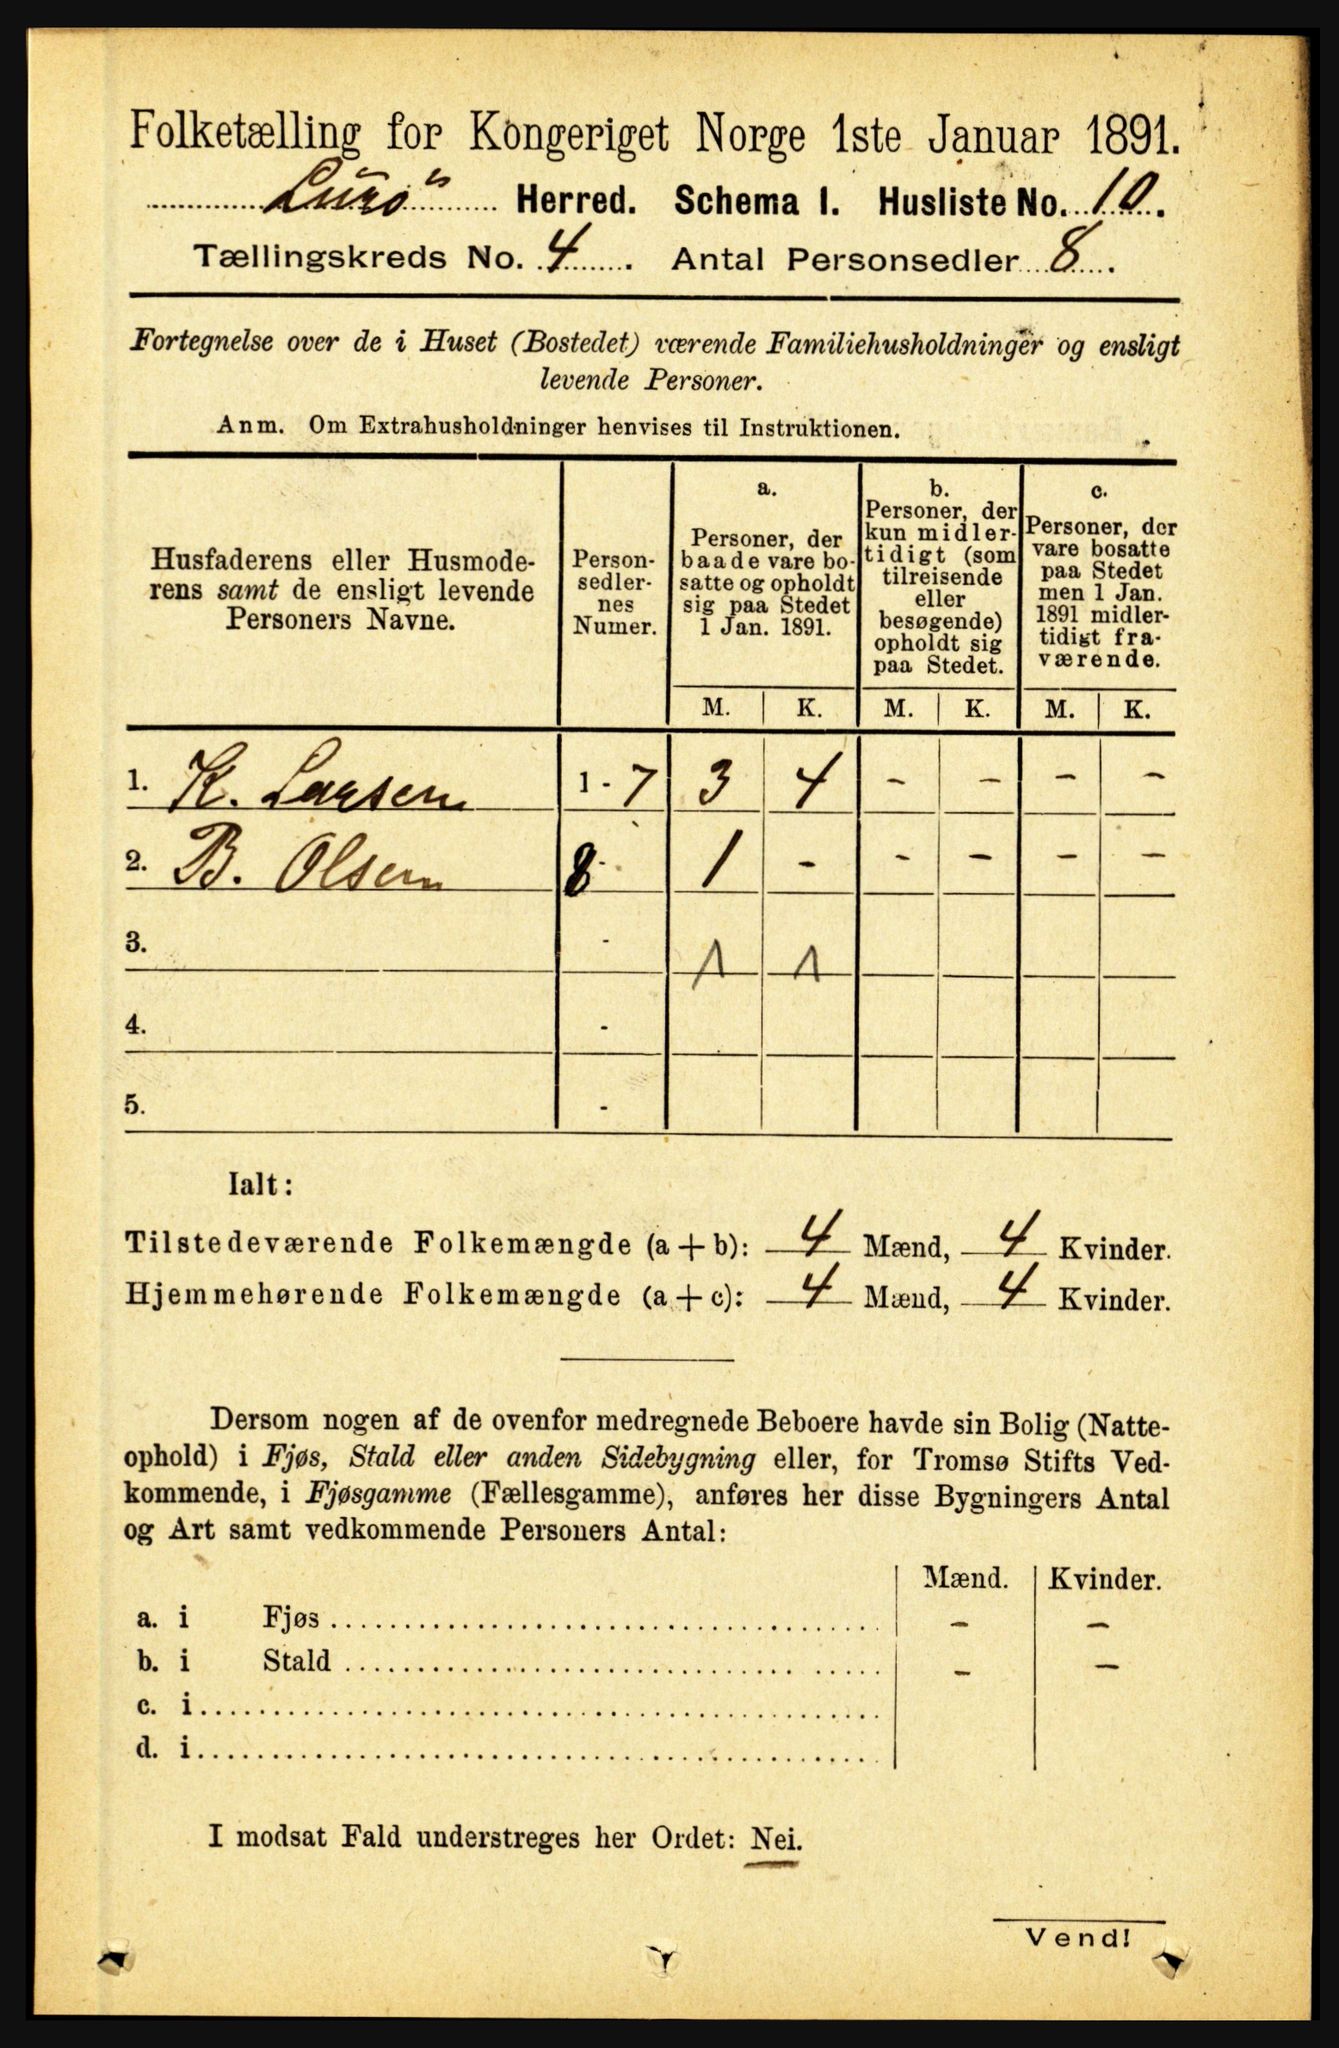 Folketælling for Kongeriget Norge 1ste Januar 1891.
Lurö Herred. Schema 1. Husliste No. 10.
Tællingskreds No. 4. Antal Personsedler 8.
Fortegnelse over de i Huset (Bostedet) værende Familiehusholdninger og ensligt
levende Personer.
Anm. Om Extrahusholdninger henvises til Instruktionen.
Husfaderens eller Husmode-
rens samt de ensligt levende
Personers Navne.
Person-
sedler-
nes
Numer.
a.
Personer, der
baade vare bo-
satte og opholdt
sig paa Stedet
1 Jan. 1891.
b.
Personer, der
kun midler-
tidigt (som
tilreisende
eller
besøgende)
opholdt sig
paa Stedet.
c.
Personer, der
vare bosatte
paa Stedet
men 1 Jan.
1891 midler-
tidigt fra-
værende.
M. K. M. K. M. K.
1. K. Larsen 1 - 7 3 4 - - - -
2. B. Olsen 8 - 1 - - - - -
3. - 1 1
4. -
5. -
Ialt:
Tilstedeværende Folkemængde (a + b): 4 Mænd, 4 Kvinder.
Hjemmehørende Folkemængde (a + c): 4 Mænd, 4 Kvinder.
Dersom nogen af de ovenfor medregnede Beboere havde sin Bolig (Natte-
ophold) i Fjøs, Stald eller anden Sidebygning eller, for Tromsø Stifts Ved-
kommende, i Fjøsgamme (Fællesgamme), anføres her disse Bygningers Antal
og Art samt vedkommende Personers Antal:
Mænd. Kvinder.
a. i Fjøs - -
b. i Stald - -
c. i
d. i
I modsat Fald understreges her Ordet: Nei.
Vend!